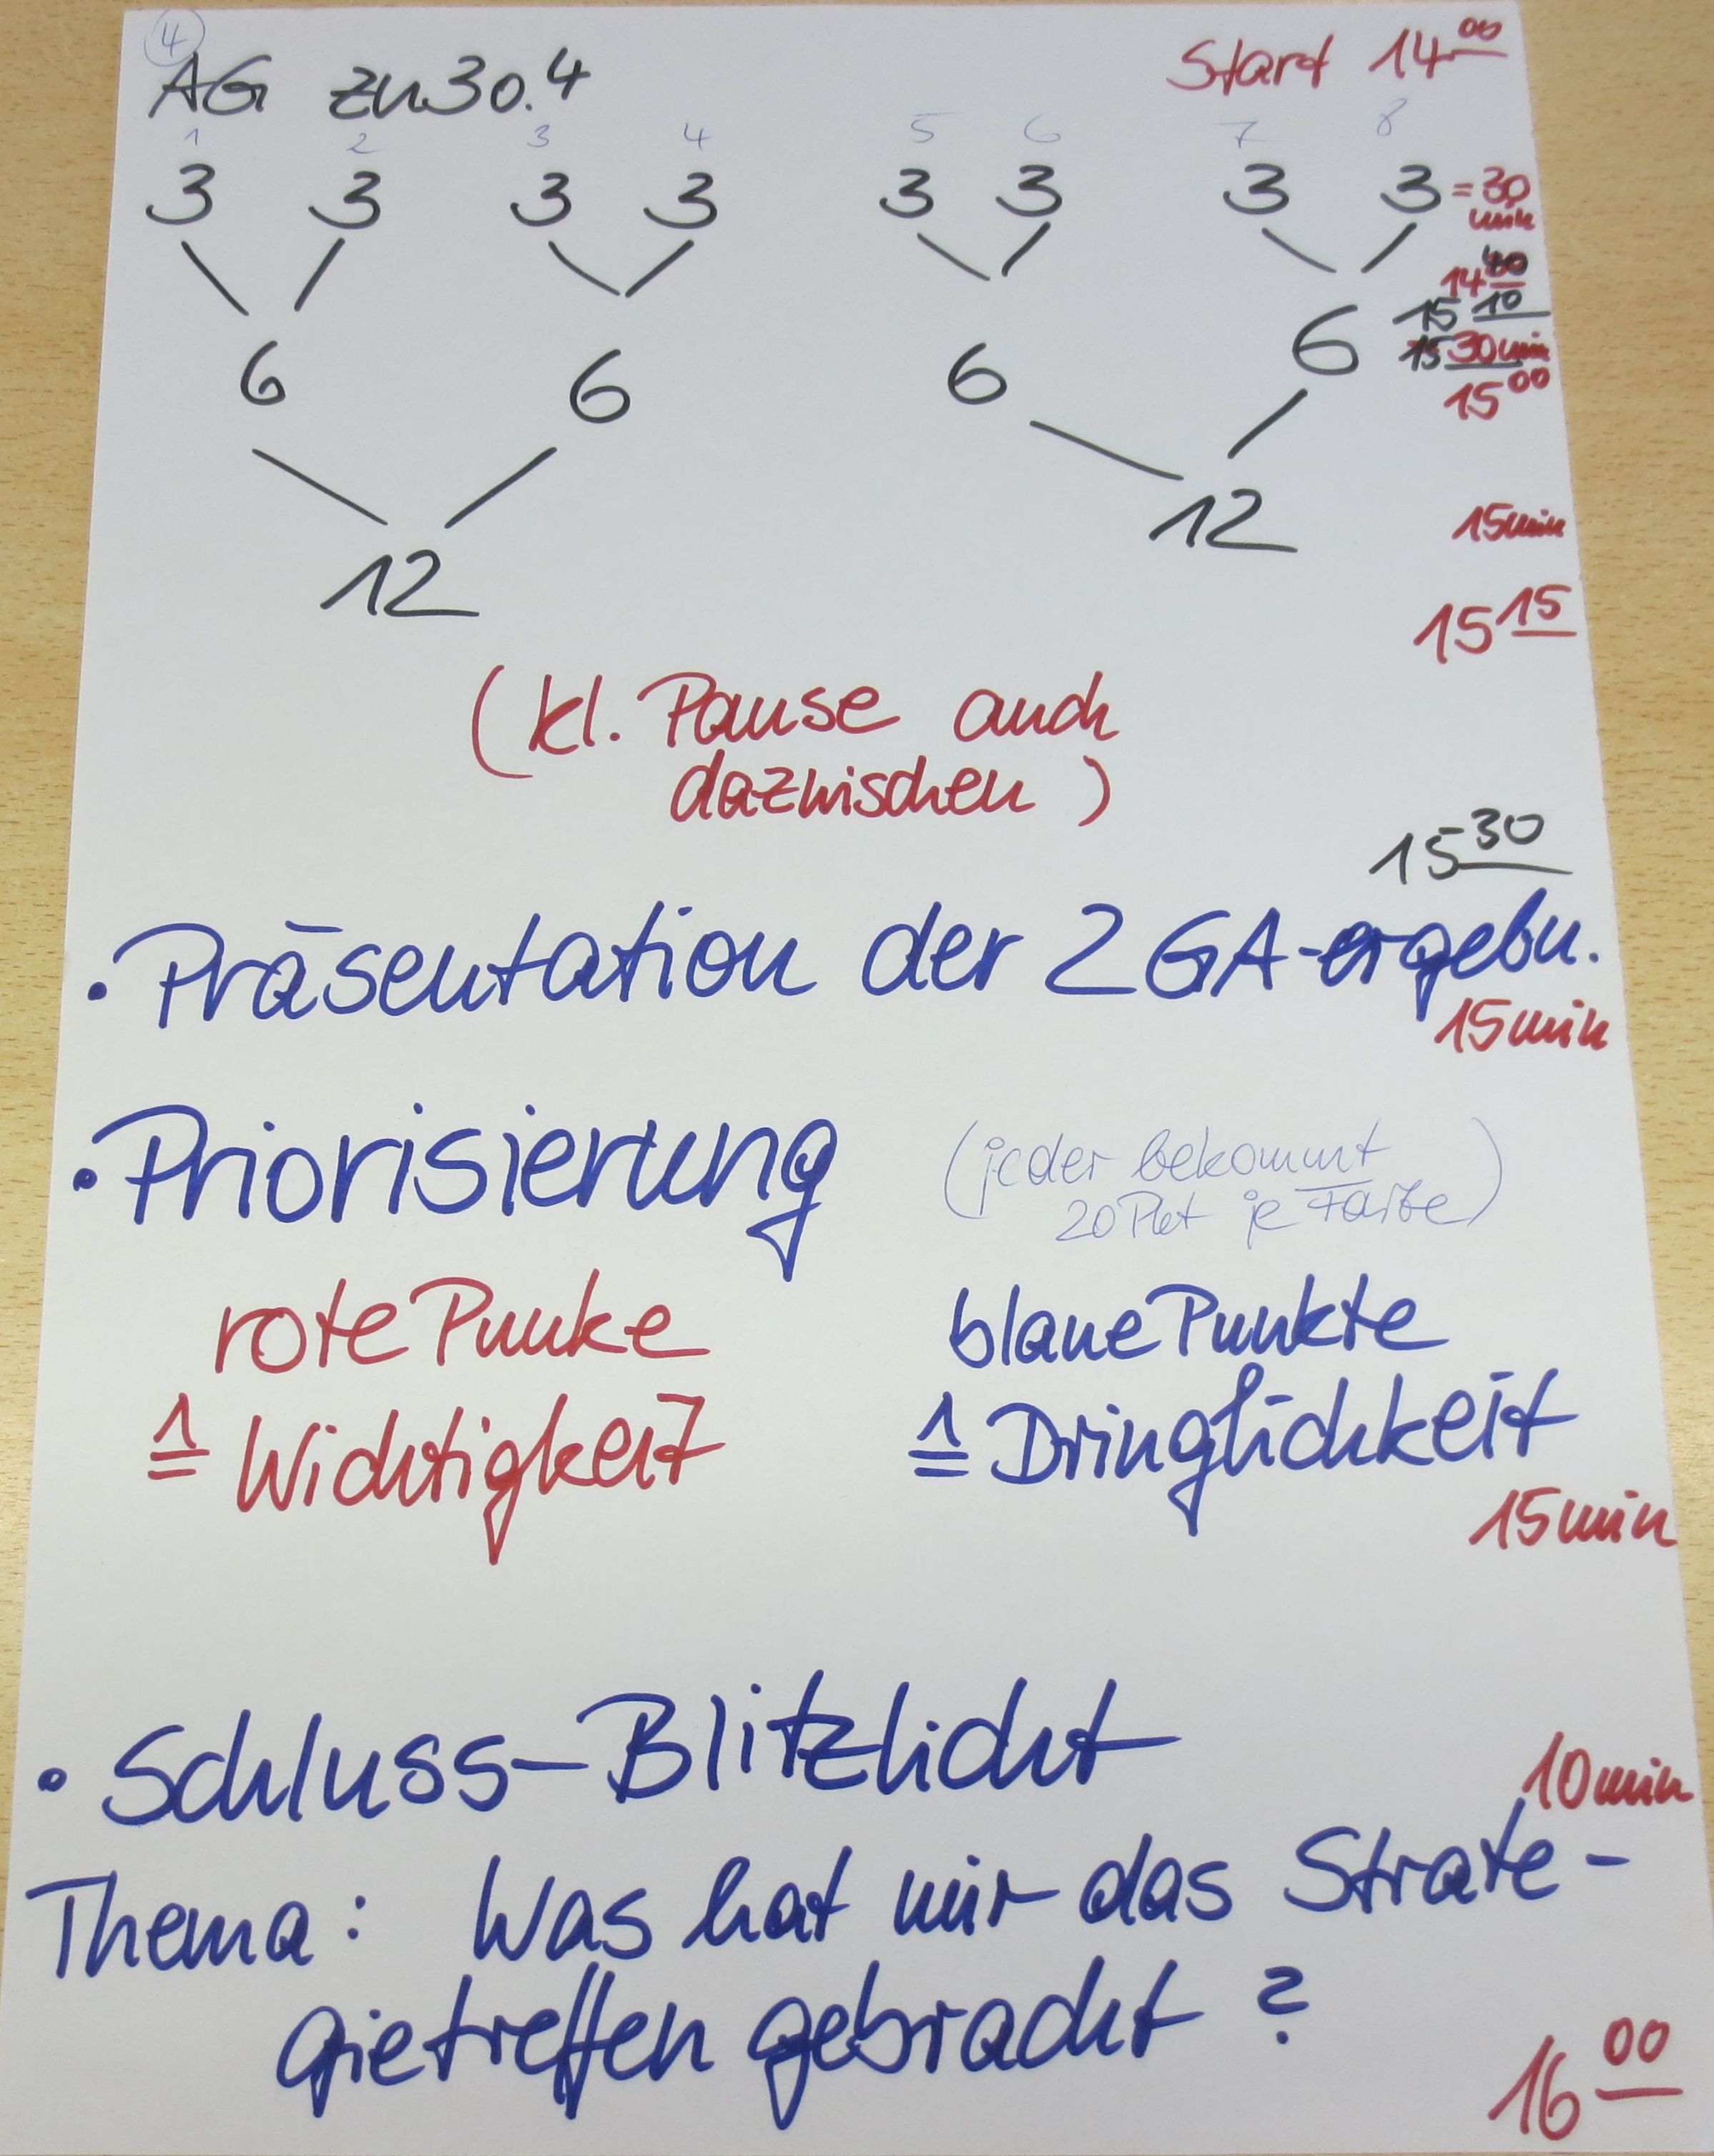 4
AG zu 30.4 Start 14 00
1 2 3 4 5 6 7 8
3 3 3 3 3 3 3 3 = 30 min
14 40
15 10
6 6 6 6 15 30 min
15 00
12 12 15 min
15 15
(kl. Pause auch
dazwischen)
15 30
• Präsentation der 2 GA-ergebn.
15 min
• Priorisierung (jeder bekommt
20 Pkt je Farbe)
rote Punke blaue Punkte
≙ Wichtigkeit ≙ Dringlichkeit
15 min
• Schluss-Blitzlicht
10 min
Thema: Was hat mir das Strate-
gietreffen gebracht?
16 00